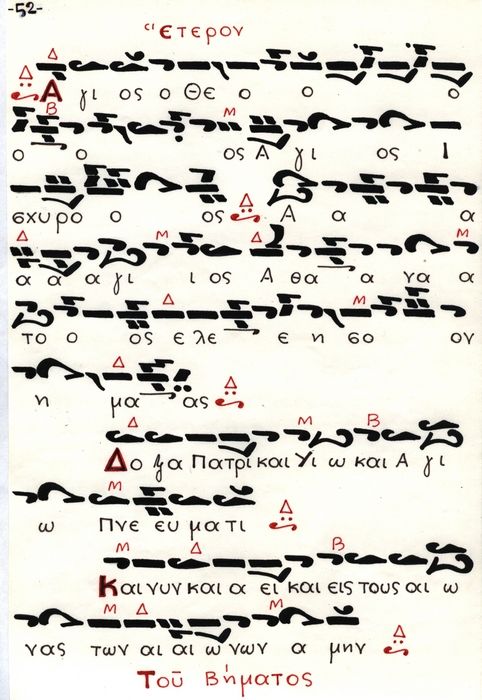 -52-
Ἕτερον
Δ
Δ Α γι ος ο Θε ο ο ο
Β Μ
ο ο ος Α γι ος Ι
σχυρο ο ος Δ Α α α
Δ Μ Δ Μ
α α α γι ι ος Α θα α να α
Δ Μ
το ο ος ε λε ε η σο ον
Δ
η μα ας Δ
Δ Μ Β
Δο ξα Πατρι και Υι ω και Α γι
Μ
ω Πνε ευ μα τι Δ
Μ Δ Β
Και νυν και α ει και εις τους αι ω
Μ Δ Μ
νας των αι αι ω νων α μην Δ
Τοῦ Βήματος